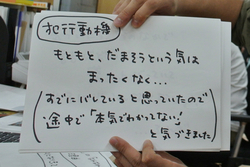 犯行動機
もともと、だまそうという気は
まったくなく…
(すでにバレていると思っていたので
途中で「本気でわかってない!」
と気づきました)